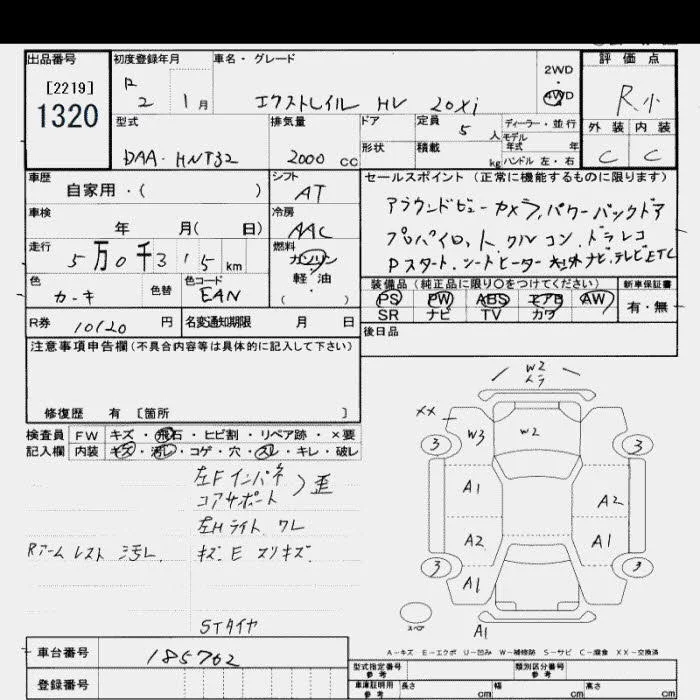 出品番号
[2219]
1320
初度登録年月
R 2 1月
車名・グレード
エクストレイル HV 20Xi
2WD
4WD
評価点
R小
外装 内装
C C
型式
DAA-HNT32
排気量
2000 cc
ドア
形状
定員
5 人
積載
kg
ディーラー・並行
モデル
年式 年
ハンドル 左・右
車歴
自家用・( )
シフト
AT
車検
年 月( 日)
冷房
AAC
走行
5万0千315km
燃料
ガソリン
軽・油
( ・ )
色
カーキ
色替
色コード
EAN
R券
10120 円
名変通知期限 月 日
セールスポイント(正常に機能するものに限ります)
アラウンドビューカメラ, パワーバックドア
プロパイロット, クルコン, ドラレコ
Pスタート, シートヒーター 社外ナビ, テレビ, ETC
装備品(純正品に限り○をつけてください)
PS PW ABS エアB AW
SR ナビ TV カワ
新車保証書
有・無
後日品
注意事項申告欄(不具合内容等は具体的に記入して下さい)
修復歴 有 [箇所 ]
検査員
記入欄
FW キズ・飛石・ヒビ割・リペア跡・×要
内装 キズ・汚レ・コゲ・穴・スレ・キレ・破レ
左Fインパネ
コアサポート
歪
左Hライト ワレ
Rアームレスト 汚レ
キズ, E スリキズ
STタイヤ
W2
××
W3
W2
3
3
A1
A2
A2
A1
3
3
A1
スペア
A1
A-キズ E-エクボ U-凹み W-補修跡 S-サビ C-腐食 XX-交換済
車台番号
185762
登録番号
型式指定番号
参考
類別区分番号
参考
車庫証明用
参考
長さ cm
幅 cm
高さ cm